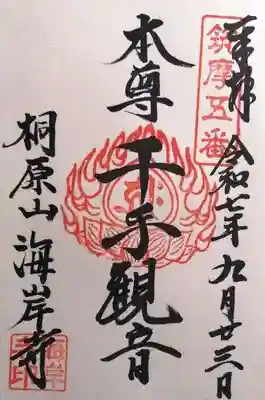 奉拝 令和七年九月廿三日
筑摩五番
本尊 千手観音
桐原山 海岸寺
海岸
寺印